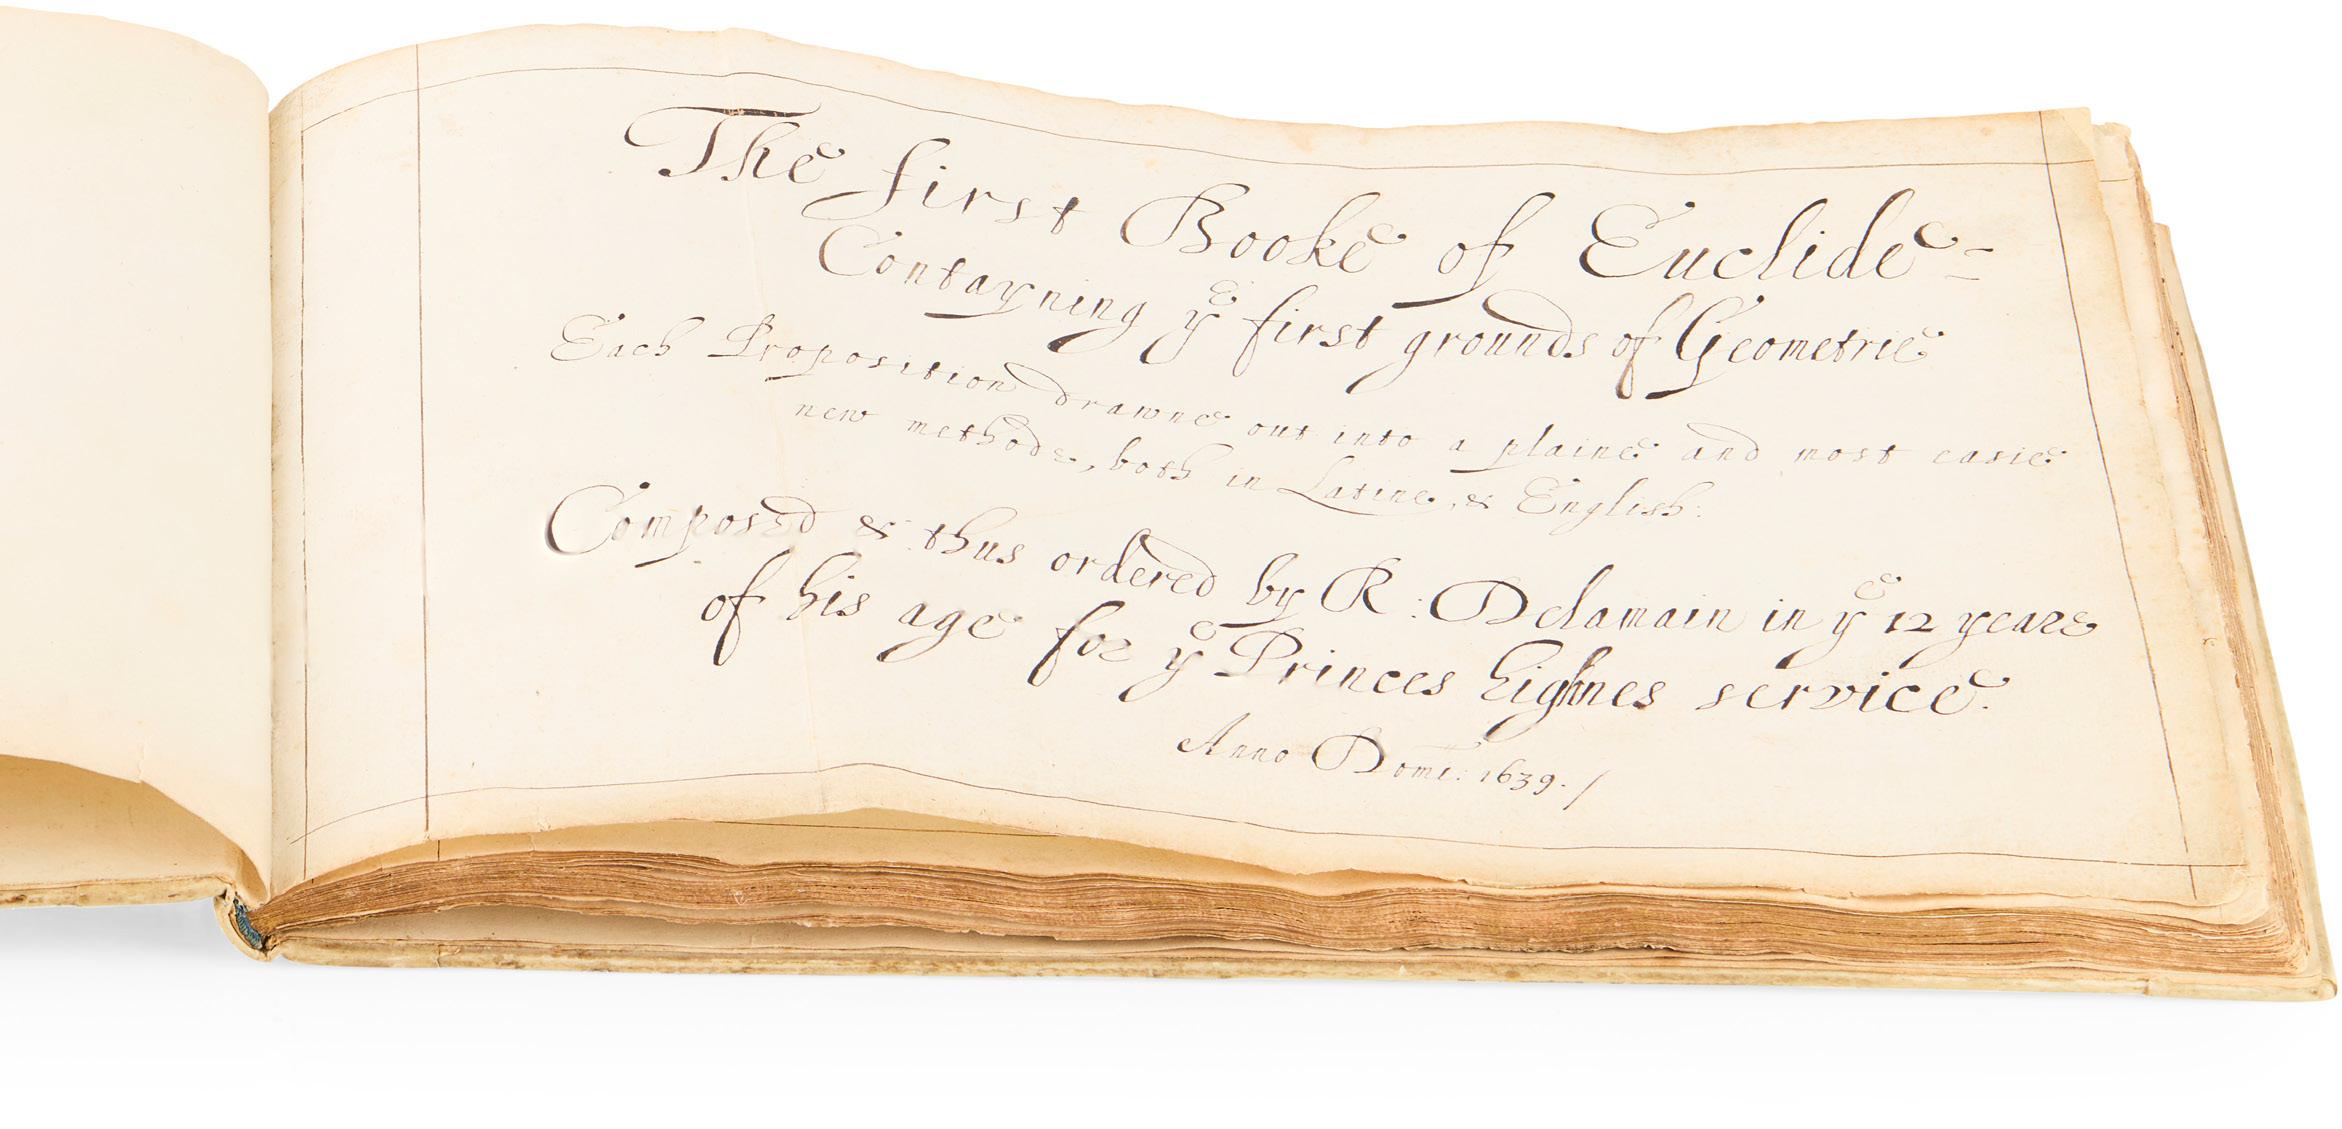 The first Booke of Euclide=
Contayning yᵉ first grounds of Geometrie
Each Proposition drawne out into a plaine and most easie
new methode, both in Latine, & English:
Composed & thus ordered by R: Delamain in yᵉ 12 yeare
of his age for yᵉ Princes highnes service.
Anno Domi: 1639./